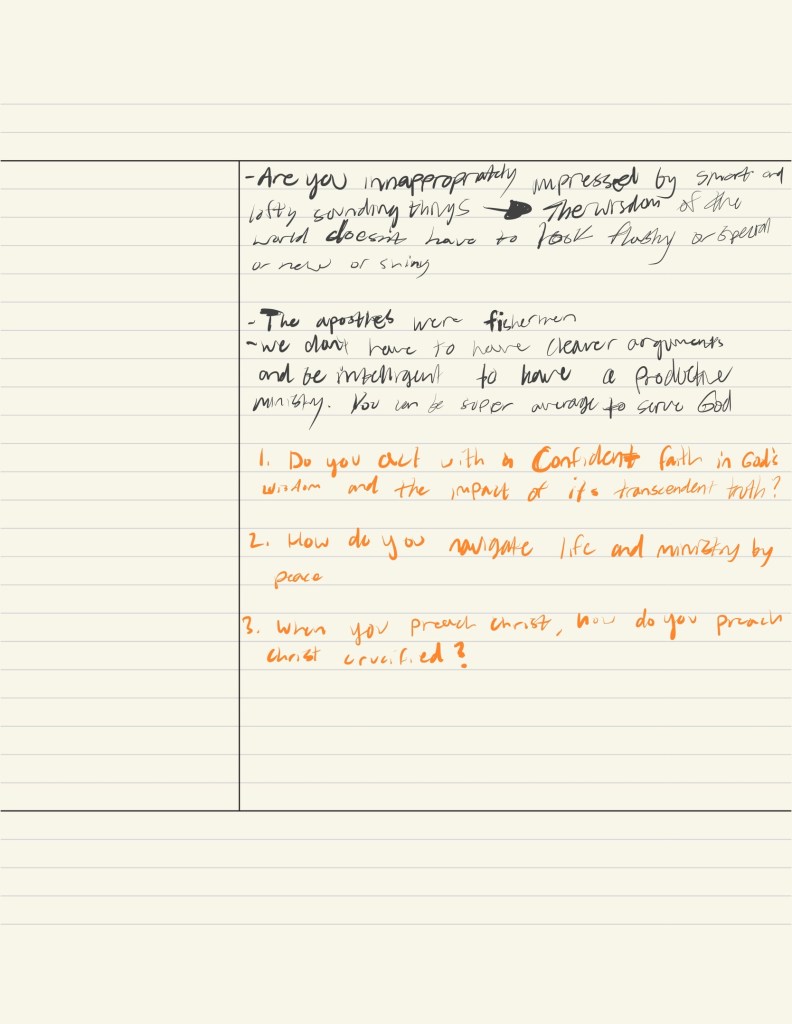 - Are you innappropriately impressed by smart and
lofty sounding things → The wisdom of the
world doesn't have to look flashy or special
or new or shiny
- The apostles were fishermen
- we don't have to have cleaver arguments
and be intelligent to have a productive
ministry. You can be super average to serve God
1. Do you act with a Confident faith in God's
wisdom and the impact of its transcendent truth?
2. How do you navigate life and ministry by
peace
3. When you preach christ, how do you preach
christ crucified?